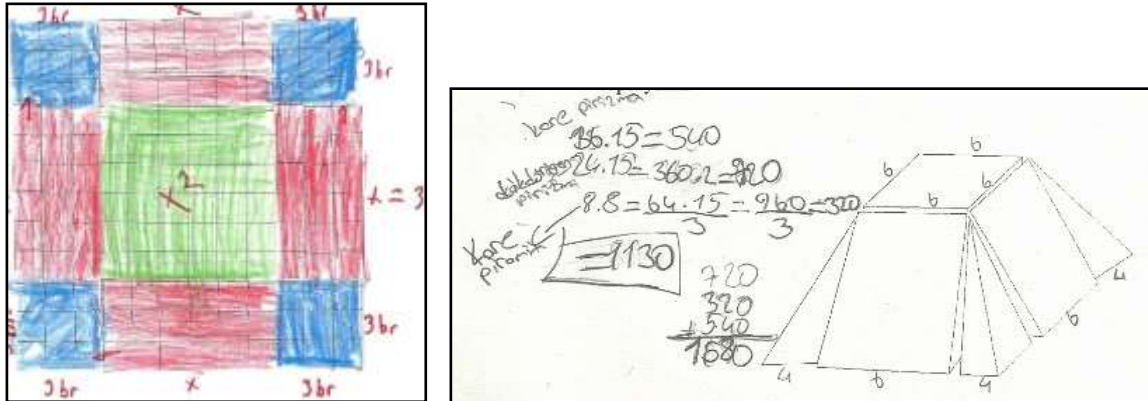 3br x 3br
3br
x²
x = 3
3br
3br x 3br
kare pirizma
36.15=540
24.15=360.2=720
8.8=64.15=960=320
3 3
kare
piramit
=1130
720
320
+540
1580
6
6
6
6
4
6
4
6
4